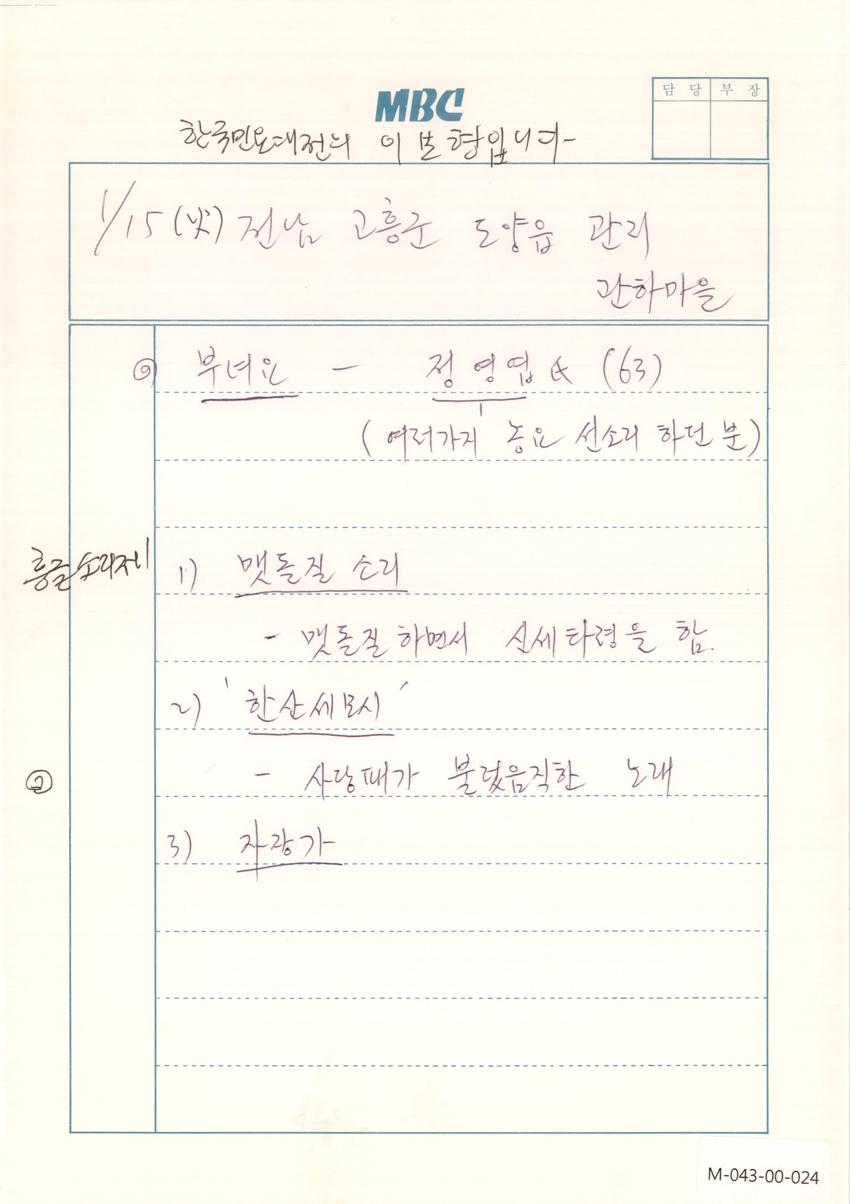 담 당 부 장
MBC
한국민요대전의 이보형입니다-
1/15 (낮) 전남 고흥군 도양읍 관리
관하마을
부녀요 - 정영엽 (63)
(여러가지 농요 선소리 하던 분)
흥글소리저니 1) 맷돌질 소리
- 맷돌질 하면서 신세타령을 함.
2) '한산세모시'
② - 사당패가 불렀음직한 노래
3) 자장가
M-043-00-024